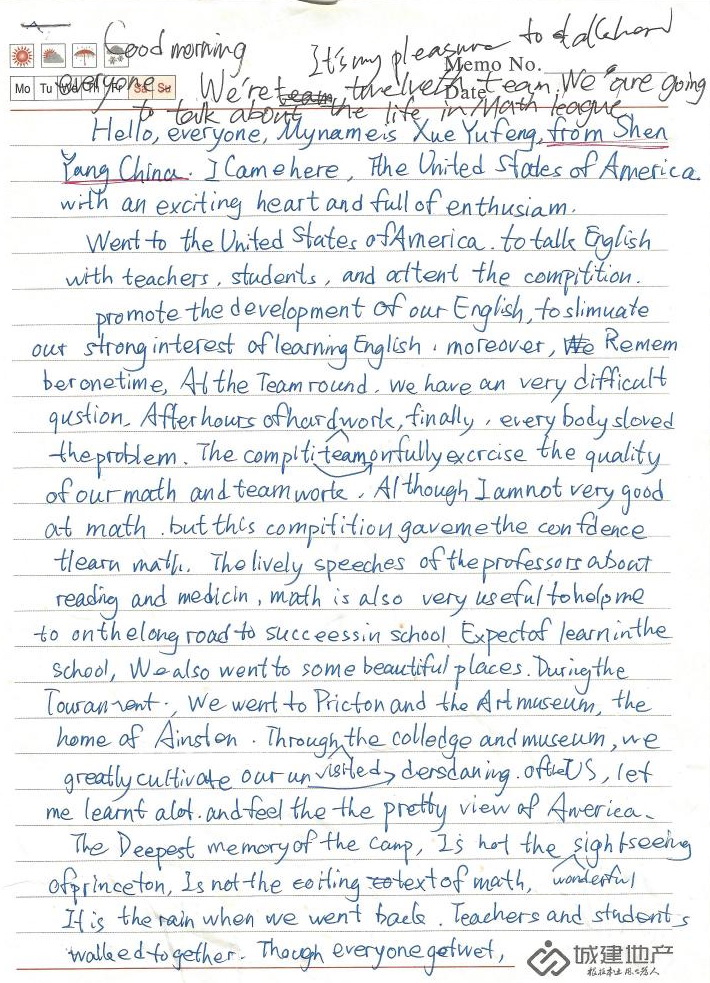 Good morning It's my pleasure to talk
Memo No.
Mo Tu We Th Fr Sa Su
everyone We're team twelveth team. We are going
Date
to talk about the life in Math league
Hello, everyone, My name is Xue Yufeng, from Shen
Yang China. I Came here, The United States of America
with an exciting heart and full of enthusiam.
Went to the United States of America. to talk English
with teachers, students, and attent the compitition.
promote the development of our English, to slimuate
our strong interest of learning English. moreover, We Remem
ber one time, At the Team round. we have an very difficult
qustion. After hours of hard work, finally, every body sloved
the problem. The compititeamon fully excrcise the quality
of our math and team work. Although I am not very good
at math. but this compitition gave me the confdence
tlearn math. The lively speeches of the professors about
reading and medicin, math is also very useful to help me
to on the long road to succeess in school Expect of learn in the
school, We also went to some beautiful places. During the
Touranment., We went to Pricton and the Art museum, the
home of Ainston. Through the colledge and museum, we
greatly cultivate our un visited dersdaning. of the US, let
me learnt alot. and feel the the pretty view of America.
The Deepest memory of the camp, Is not the sightseeing
of princeton, Is not the text of math, wonderful
It is the rain when we went back. Teachers and students
walked together. Though everyone get wet,
城建地产